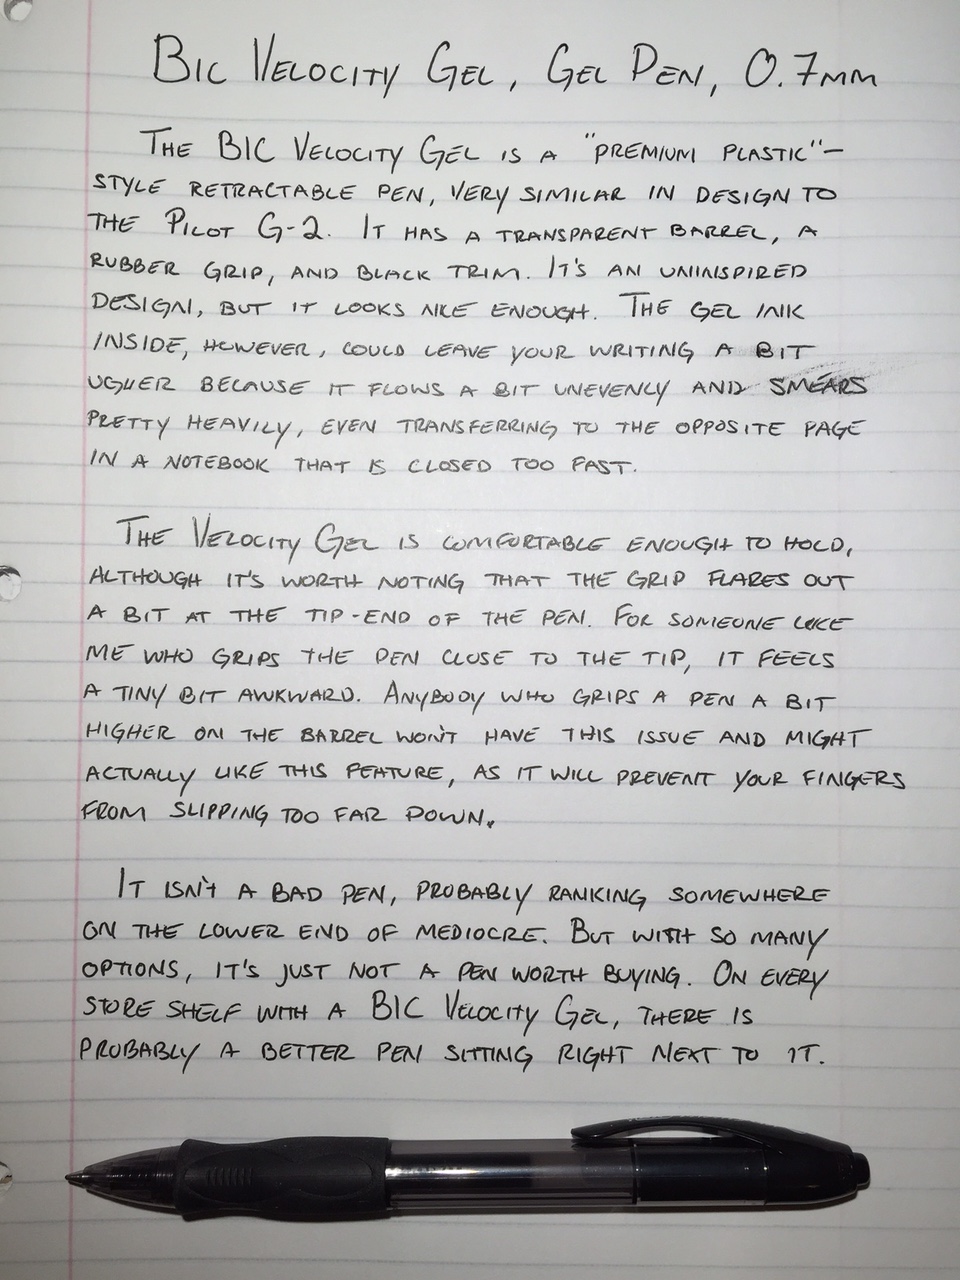 BIC VELOCITY GEL, GEL PEN, 0.7MM
THE BIC VELOCITY GEL IS A "PREMIUM PLASTIC"-
STYLE RETRACTABLE PEN, VERY SIMILAR IN DESIGN TO
THE PILOT G-2. IT HAS A TRANSPARENT BARREL, A
RUBBER GRIP, AND BLACK TRIM. IT'S AN UNINSPIRED
DESIGN, BUT IT LOOKS NICE ENOUGH. THE GEL INK
INSIDE, HOWEVER, COULD LEAVE YOUR WRITING A BIT
UGLIER BECAUSE IT FLOWS A BIT UNEVENLY AND SMEARS
PRETTY HEAVILY, EVEN TRANSFERRING TO THE OPPOSITE PAGE
IN A NOTEBOOK THAT IS CLOSED TOO FAST.
THE VELOCITY GEL IS COMFORTABLE ENOUGH TO HOLD,
ALTHOUGH IT'S WORTH NOTING THAT THE GRIP FLARES OUT
A BIT AT THE TIP-END OF THE PEN. FOR SOMEONE LIKE
ME WHO GRIPS THE PEN CLOSE TO THE TIP, IT FEELS
A TINY BIT AWKWARD. ANYBODY WHO GRIPS A PEN A BIT
HIGHER ON THE BARREL WON'T HAVE THIS ISSUE AND MIGHT
ACTUALLY LIKE THIS FEATURE, AS IT WILL PREVENT YOUR FINGERS
FROM SLIPPING TOO FAR DOWN.
IT ISN'T A BAD PEN, PROBABLY RANKING SOMEWHERE
ON THE LOWER END OF MEDIOCRE. BUT WITH SO MANY
OPTIONS, IT'S JUST NOT A PEN WORTH BUYING. ON EVERY
STORE SHELF WITH A BIC VELOCITY GEL, THERE IS
PROBABLY A BETTER PEN SITTING RIGHT NEXT TO IT.